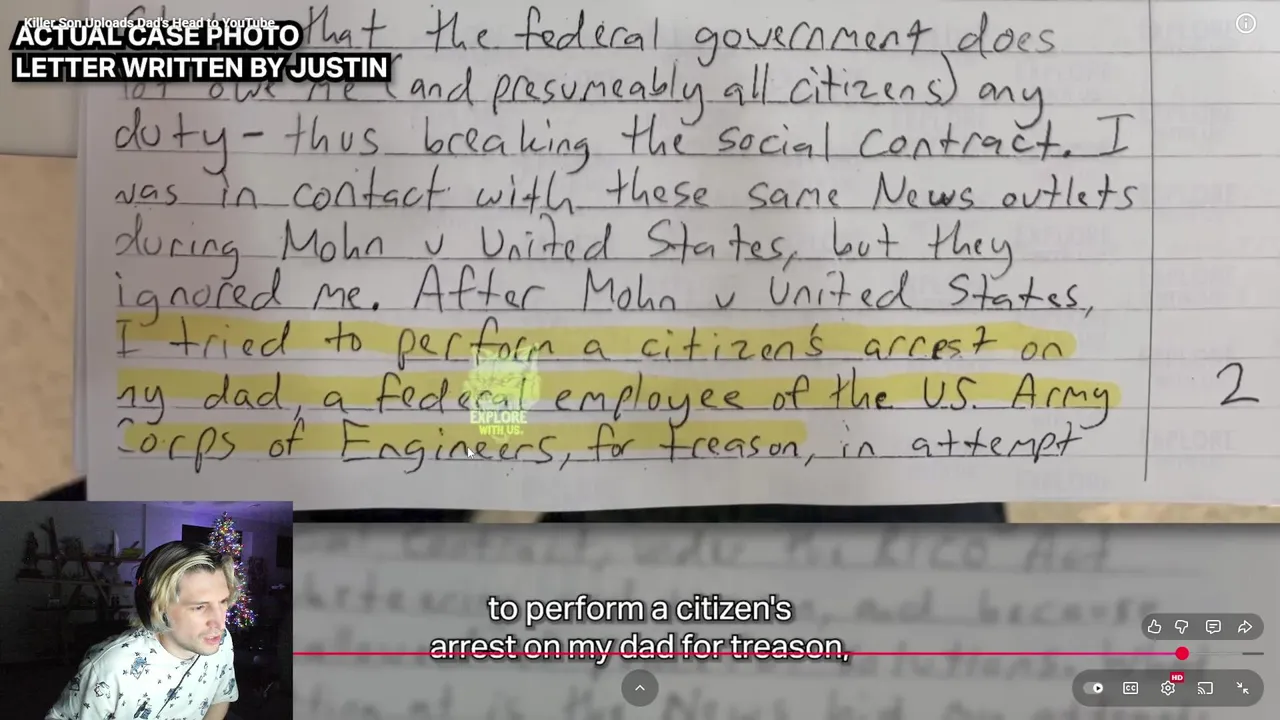 Killer Son Uploads Dad's Head to YouTube
ACTUAL CASE PHOTO
LETTER WRITTEN BY JUSTIN
that the federal government does
not owe me (and presumeably all citizens) any
duty - thus breaking the social contract. I
was in contact with these same News outlets
during Mohn v United States, but they
ignored me. After Mohn v United States,
I tried to perform a citizen's arrest on
my dad, a federal employee of the U.S. Army
Corps of Engineers, for treason, in attempt
2
EXPLORE
WITH US.
to perform a citizen's
arrest on my dad for treason,
HD
CC